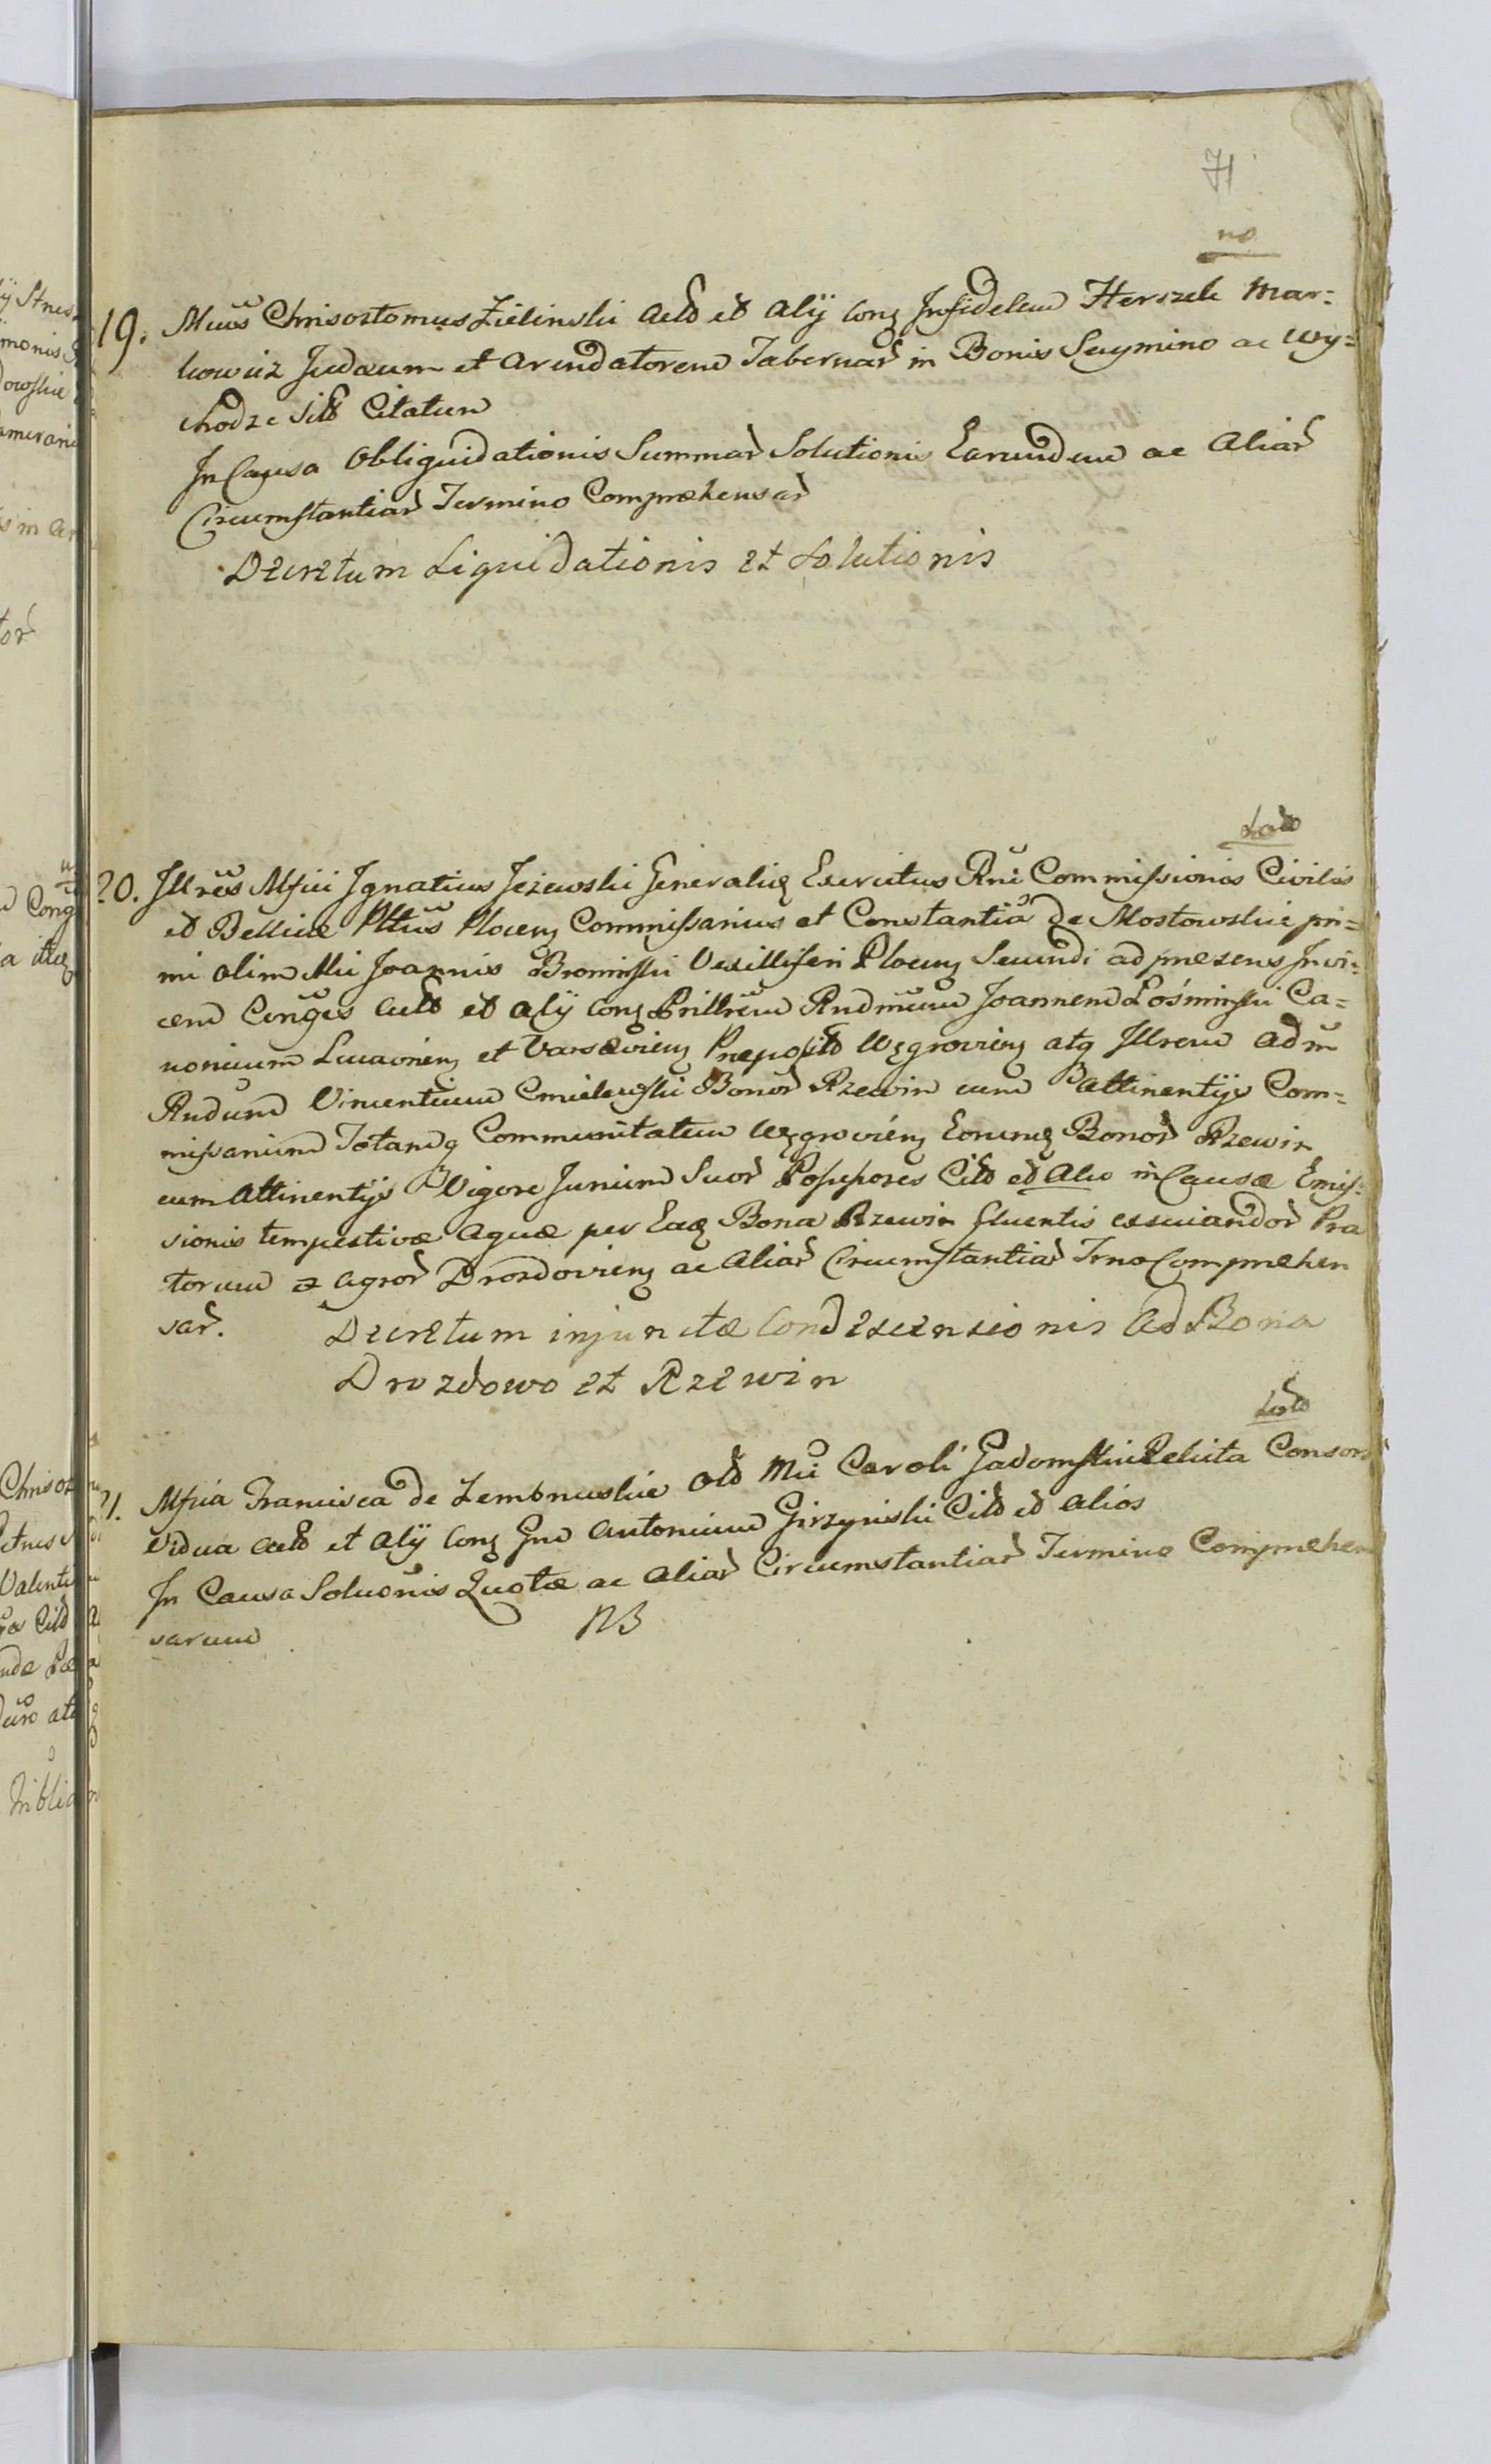 71
no
19. Mcus Chrisostomus Zielinski Actd et alij Conq Infidelem Herszek Mar=
kowicz Judæum et Arendatorem Tabernar in Bonis Seymino ac Wy=
chodzc Sitt Citatum
In Causa Obliquidationis Summar Solutionis Earundem ac Aliar
Circumstantiar Termino Compræhensar
Decretum Liquidationis et Solutionis
20. Illres Mfici Ignatius Jeżewski Generalis Exercitus Rni Commissionis Civilis
et Bellicæ Pltus Plocens Commissarius et Constantia de Mostowskie pri=
mi olim Mci Joannis Brominski Vexilliferi Plocens Secundi ad præsens Invi=
cem Conges Actt et alij Conq Prillrem Rndmum Joannem Łośminski Ca=
nonicum Luceorien et Varsavien Præposit Węgrovien atq Illrem Adm
Rndum Vincentium Cmielewski Bonor Rzewin cum Attinentijs Com=
missarium Totamq Communitatem Węgrovien Eorumq Bonor Rzewin
cum Attinentijs Vigore Jurium Suor Possessores Citd et Alio in Causa Emis=
sionis tempestivæ Aquæ per Eaq Bona Rzewin fluentis exsicandor Pra
torum et Agror Drozdovien ac Aliar Circumstantiar Trno Compræhen
sar.
Decretum injunctæ Condescensionis ad Bona
Drozdowo et Rzewin
21. Mfica Francisca de Zembrzuskie Old Mci Caroli Gadomski Relicta Consors
Vidua Actd et Alij Conq Gnd Antonium Girzynski Citd et Alios
In Causa Soluonis Quotæ ac Aliar Circumstantiar Termino Compræhen
sarum
NB